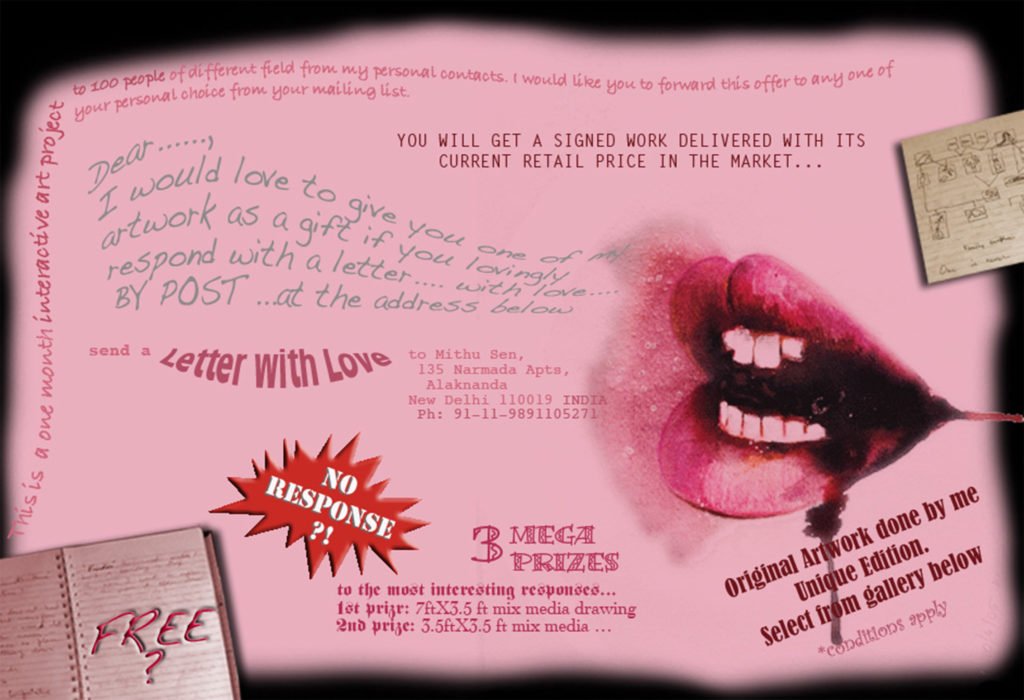 This is a one month interactive art project
to 100 people of different field from my personal contacts. I would like you to forward this offer to any one of
your personal choice from your mailing list.
YOU WILL GET A SIGNED WORK DELIVERED WITH ITS
CURRENT RETAIL PRICE IN THE MARKET...
Dear ......,
I would love to give you one of my
artwork as a gift if you lovingly
respond with a letter.... with love....
BY POST ...at the address below
send a Letter with Love to Mithu Sen,
135 Narmada Apts,
Alaknanda
New Delhi 110019 INDIA
Ph: 91-11-9891105271
NO
RESPONSE
?!
3 MEGA
PRIZES
to the most interesting responses...
1st prizr: 7ftX3.5 ft mix media drawing
2nd prize: 3.5ftX3.5 ft mix media ...
Original Artwork done by me
Unique Edition.
Select from gallery below
*conditions apply
FREE
?